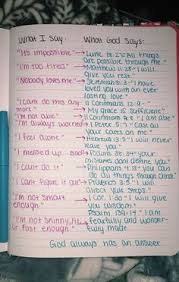 What I Say: What God Says:
"It's impossible" → Luke 18:27 "All things
are possible through me"
"I'm too tired" → Matthew 11:28 "I will
give you rest"
"Nobody loves me" → Jeremiah 31:3 "I have
loved you with an ever
lasting love"
"I can't do this any II Corinthians 12:9
more" "My grace is sufficient"
"I'm not able" II Corinthians 9:8 "I am able"
"I'm always worried" I Peter 5:7 "Cast all
your cares on me"
"I feel alone" → Hebrews 13:5 "I will never
leave you"
"I messed up" → Psalm "your
mistakes don't define you"
"I can't do it" → Philippians 4:13 "you can
do all things through Christ"
"I can't figure it out" → Proverbs 3:5 "I will
direct your steps"
"I'm not smart → I Cor. "I give you
enough" wisdom"
"I'm not skinny, → Psalm 139:14 "I am
or fast enough" fearfully and wonder-
fully made
God always has an answer